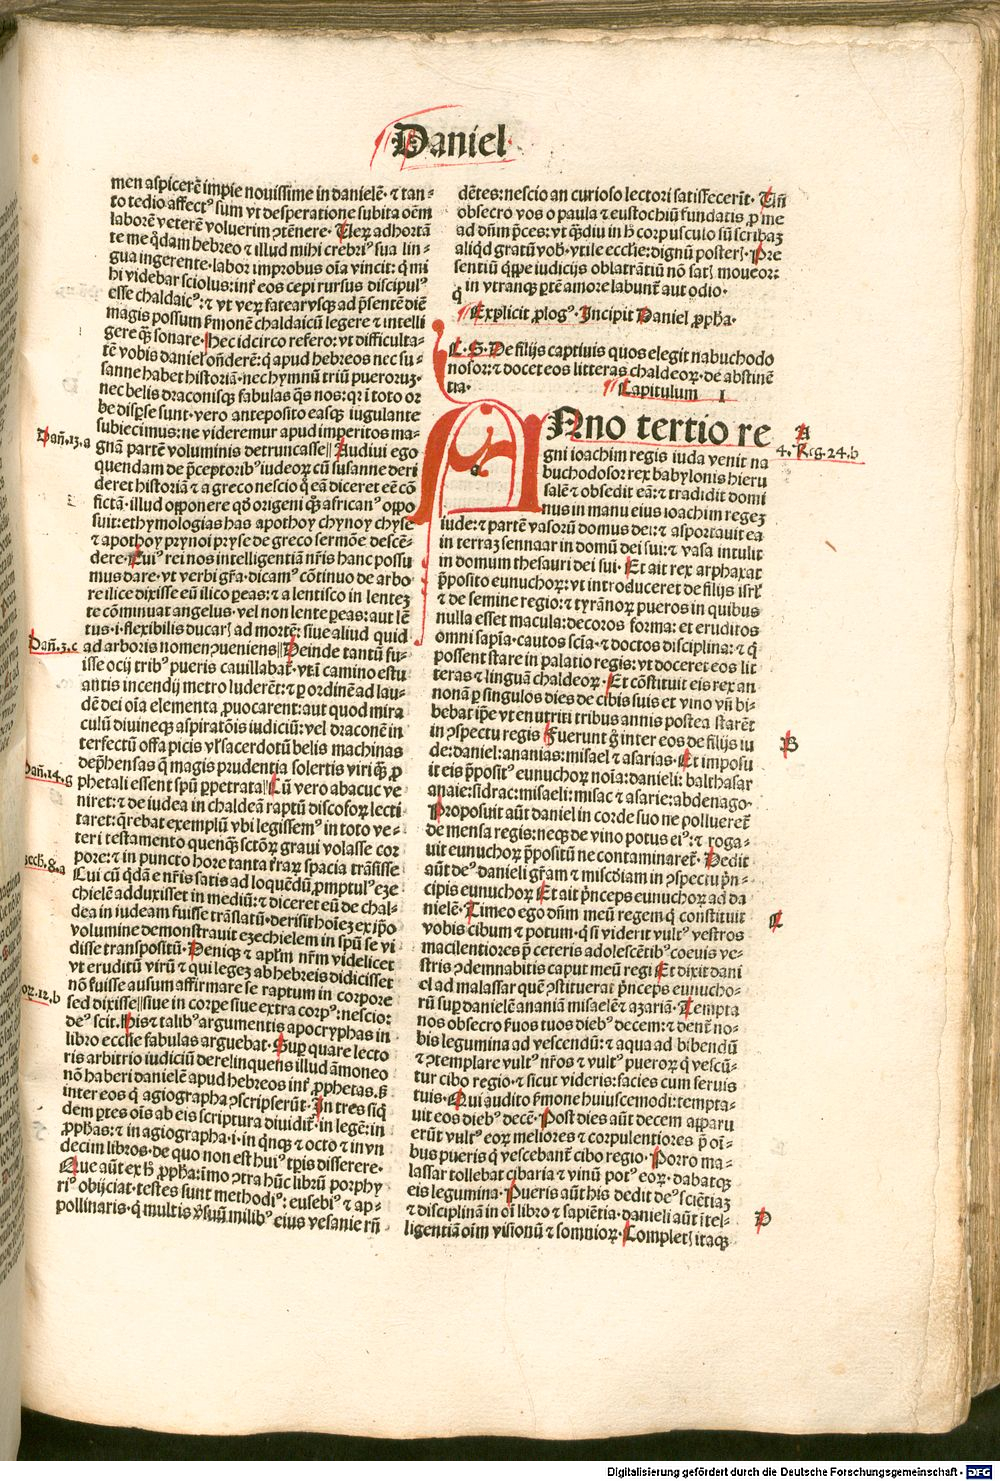 Daniel
men aspicerẽ impie nouissime in danielẽ· ⁊ tan⸗
to tedio affectꝰ sum vt desperatione subita oẽm
laborẽ veterẽ voluerim ↄtẽnere· Uerꝝ adhortã
te me q̃dam hebreo ⁊ illud mihi crebriꝰ sua lin⸗
gua ingerente· labor improbus oĩa vincit: q̃ mi
hi videbar sciolus: int̃ eos cepi rursus discipulꝰ
esse chaldaicꝰ: ⁊ vt veꝝ fatear vsqꝫ ad p̃sentẽ diẽ
magis possum ẜmonẽ chaldaicũ legere ⁊ intelli
gere qꝫ̃ sonare· Hec idcirco refero: vt difficulta⸗
tẽ vobis daniel' oñderẽ: q̃ apud hebreos nec su⸗
sanne habet historiã· nec hymnũ triũ pueroruꝫ·
nec belis draconisqꝫ fabulas q̃s nos: qꝛ i toto or
be disp̃se sunt· vero anteposito easqꝫ iugulante
subiecimus: ne videremur apud imperitos ma⸗
gnã partẽ voluminis detruncasse‖ Audiui ego
quendam de p̃ceptoribꝰ iudeoꝝ cũ susanne deri
deret historiã ⁊ a greco nescio q̃ eã diceret eẽ cõ
fictã· illud opponere qđ origeni qꝫ̃ africanꝰ oppo
suit: ethymologias has apothoy chynoy chyse
⁊ apothoy prynoi pryse de greco sermõe descẽ⸗
dere· Cuiꝰ rei nos intelligentiã nr̃is hanc possu
mus dare· vt verbi gr̃a· dicamꝰ cõtinuo de arbo⸗
re ilice dixisse eũ ilico ꝑeas: ⁊ a lentisco in lenteꝫ
te cõminuat angelus· vel non lente ꝑeas: aut lẽ
tus· i· flexibilis ducarꝭ ad mortẽ: siue aliud quid
ad arboris nomen ↄueniens‖ Deinde tantũ fu⸗
isse ocij tribꝰ pueris cauillabat̃· vti camino estu
antis incendij metro luderẽt: ⁊ ꝑ ordinẽ ad lau⸗
dẽ dei oĩa elementa ꝓuocarent: aut quod mira
culũ diuineqꝫ aspiratõis iudiciũ: vel draconẽ in
terfectũ offa picis vl' sacerdotũ belis machinas
dep̃hensas q̃ magis prudentia solertis viri qꝫ̃ ꝓ
phetali essent spũ ꝑpetrata‖ Cũ vero abacuc ve
niret: ⁊ de iudea in chaldeã raptũ discoforꝝ lecti
taret: q̃rebat exemplũ vbi legissemꝰ in toto ve⸗
teri testamento quenqꝫ sctõꝝ graui volasse cor
pore: ⁊ in puncto hore tanta t̃raꝝ spacia trãsisse
Cui cũ q̃dã e nr̃is satis ad loquẽdũ ꝓmptulꝰ eze
chielẽ adduxisset in mediũ: ⁊ diceret eũ de chal⸗
dea in iudeam fuisse trãslatũ· derisit hoĩez ex ip̃o
volumine demonstrauit ezechielem in spũ se vi
disse transpositũ· Deniqꝫ ⁊ aplm̃ nr̃m videlicet
vt eruditũ virũ ⁊ qui legeꝫ ab hebreis didicisset
nõ fuisse ausum affirmare se raptum in corpore
sed dixisse‖ siue in corꝑe siue extra corpꝰ: nescio:
deꝰ scit. His ⁊ talibꝰ argumentis apocryphas in
libro ecclie fabulas arguebat· Suꝑ quare lecto
ris arbitrio iudiciũ derelinquens illud ãmoneo
nõ haberi danielẽ apud hebreos int̃ ꝓphetas. ẜ
inter eos q̃ agiographa ↄscripserũt· In tres siq̃
dem ꝑtes oĩs ab eis scriptura diuidit̃· in legẽ: in
ꝓphas: ⁊ in agiographa· i· in q̃nqꝫ ⁊ octo ⁊ in vn
decim libros· de quo non est huiꝰ tꝑis disserere·
Que aũt ex hꝭ ꝓpha: imo ↄtra hũc librũ porphy
riꝰ obijciat· testes sunt methodiꝰ: eusebiꝰ ⁊ ap⸗
pollinaris· q̃ multis ṽsuũ milibꝰ eius vesanie rñ
Dañ.13.a
Dañ.3.c
Dañ.14.g
zech.8.a
oꝝ.12.b
dẽtes: nescio an curioso lectori satisfecerĩt· Uñ
obsecro vos o paula ⁊ eustochiũ fundatis ꝓ me
ad dñm p̃ces: vt qꝫ̃diu in hꝭ corpusculo sũ: scribaꝫ
aliq̃d gratũ vob̃· vtile ecclie: dignũ posterꝭ· Pre
sentiũ q̃ppe iudicijs oblatrãtiũ nõ satꝭ moueor:
q̃ in vtranqꝫ ꝑtẽ amore labunt̃ aut odio·
Explicit ꝓlogꝰ· Incipit Daniel ꝓpha·
C· S· De filijs captiuis quos elegit nabuchodo
nosor: ⁊ docet eos litteras chaldeoꝝ· de abstinẽ
tia· Capitulum I
ANno tertio re
gni ioachim regis iuda venit na
buchodosor rex babylonis hieru
salẽ ⁊ obsedit eã: ⁊ tradidit domi
nus in manu eius ioachim regeꝫ
iude: ⁊ partẽ vasorũ domus dei: ⁊ asportauit ea
in terraꝫ sennaar in domũ dei sui: ⁊ vasa intulit
in domum thesauri dei sui· Et ait rex arphaxat
p̃posito eunuchoꝝ: vt introduceret de filijs isrl̃
⁊ de semine regio: ⁊ tyrãnoꝝ pueros in quibus
nulla esset macula: decoros forma: et eruditos
omni sapĩa· cautos scĩa· ⁊ doctos disciplina: ⁊ q̃
possent stare in palatio regis: vt doceret eos lit
teras ⁊ linguã chaldeoꝝ· Et cõstituit eis rex an
nonã ꝑ singulos dies de cibis suis et vino vñ bi⸗
bebat ip̃e vt enutriti tribus annis postea starẽt
in ↄspectu regis Fuerunt g̃ inter eos de filijs iu
de: daniel: ananias: misael ⁊ asarias· Et imposu
it eis p̃positꝰ eunuchoꝝ noĩa: danieli: balthasar
anaie: sidrac: misaeli: misac ⁊ asarie: abdenago·
Proposuit aũt daniel in corde suo ne pollueret̃
de mensa regis: neqꝫ de vino potus eiꝰ: ⁊ roga⸗
uit eunuchoꝝ p̃positũ ne contaminaret̃· Dedit
aũt deꝰ danieli gr̃am ⁊ mis̃diam in ↄspectu p̃n⸗
cipis eunuchoꝝ Et ait p̃nceps eunuchoꝝ ad da
nielẽ· Timeo ego dñm meũ regem q̃ constituit
vobis cibum ⁊ potum· q̃ si viderit vultꝰ vestros
macilentiores p̃ ceteris adolescẽtibꝰ coeuis ve⸗
stris ↄdemnabitis caput meũ regi Et dixit dani
el ad malassar quẽ ↄstituerat p̃nceps eunucho⸗
rũ suꝑ danielẽ ananiã misaelẽ ⁊ azariã· Tempta
nos obsecro ẜuos tuos diebꝰ decem: ⁊ dent̃ no⸗
bis legumina ad vescendũ: ⁊ aqua ad bibendũ
⁊ ↄtemplare vultꝰ nr̃os ⁊ vultꝰ pueroꝝ q̃ vescũ⸗
tur cibo regio· ⁊ sicut videris: facies cum seruis
tuis· Qui audito ẜmone huiuscemodi: tempta⸗
uit eos diebꝰ decẽ· Post dies aũt decem apparu
erũt vultꝰ eoꝝ meliores ⁊ corpulentiores p̃ oĩ⸗
bus pueris q̃ vescebant̃ cibo regio· Porro ma⸗
lassar tollebat cibaria ⁊ vinũ potꝰ eoꝝ· dabatqꝫ
eis legumina· Pueris aũt his dedit deꝰ sciẽtiaꝫ
⁊ disciplinã in oĩ libro ⁊ sapiẽtia· danieli aũt ĩtel⸗
ligentiã oĩm visionũ ⁊ somnioꝝ· Completꝭ itaqꝫ
A
4. Reg.24.b
B
C
D
Digitalisierung gefördert durch die Deutsche Forschungsgemeinschaft - DFG